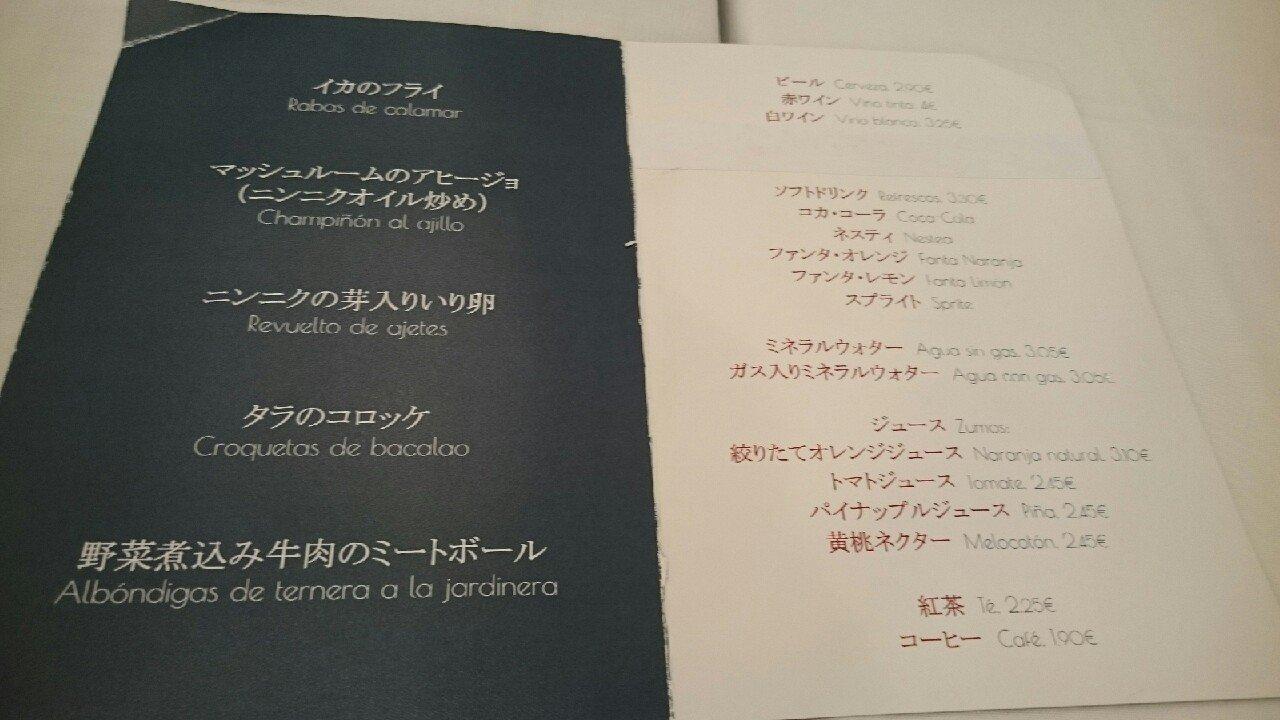 イカのフライ
Rabas de calamar
マッシュルームのアヒージョ
(ニンニクオイル炒め)
Champiñón al ajillo
ニンニクの芽入りいり卵
Revuelto de ajetes
タラのコロッケ
Croquetas de bacalao
野菜煮込み牛肉のミートボール
Albóndigas de ternera a la jardinera
ビール Cerveza. 2.90€
赤ワイン Vino tinto. 4€
白ワイン Vino blanco. 3.25€
ソフトドリンク Refrescos. 3.30€
コカ・コーラ Coca Cola
ネスティ Nestea
ファンタ・オレンジ Fanta Naranja
ファンタ・レモン Fanta Limón
スプライト Sprite
ミネラルウォター Agua sin gas. 3.05€
ガス入りミネラルウォター Agua con gas. 3.05€
ジュース Zumos:
絞りたてオレンジジュース Naranja natural. 3.10€
トマトジュース Tomate. 2.45€
パイナップルジュース Piña. 2.45€
黄桃ネクター Melocotón. 2.45€
紅茶 Té. 2.25€
コーヒー Café. 1.90€